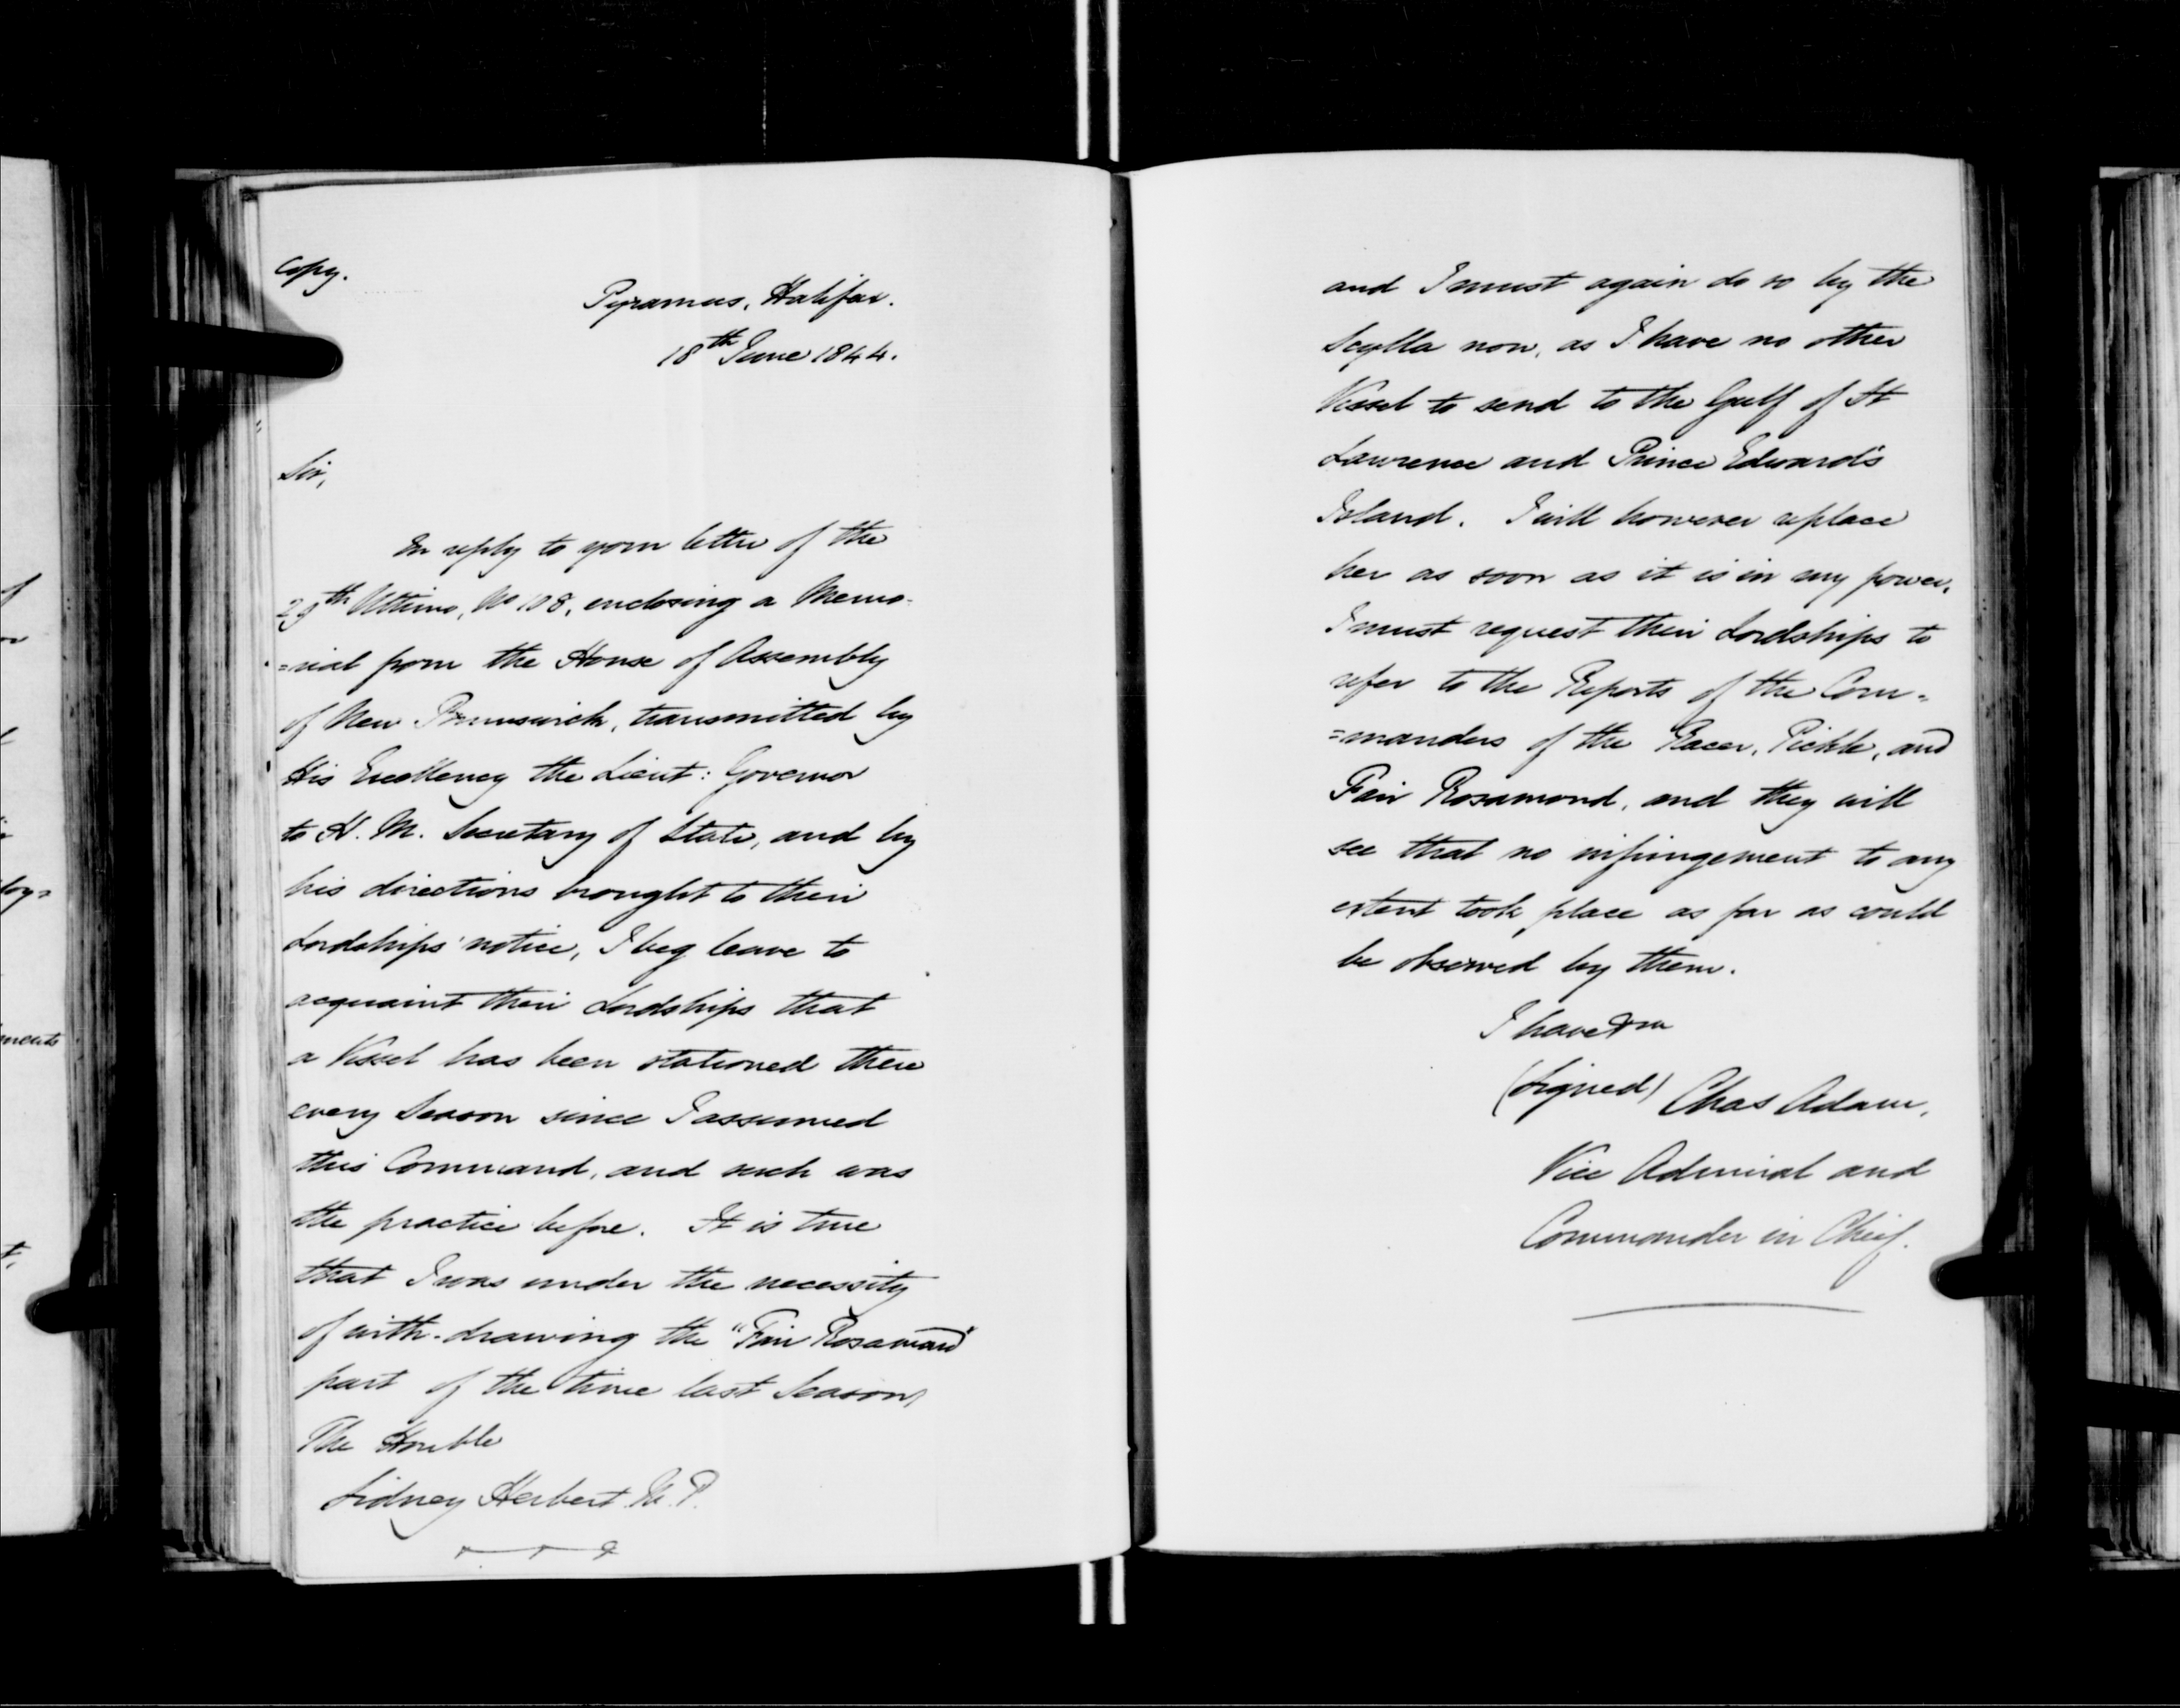 Copy.
Pyramus, Halifax.
18th June 1844.
Sir,
In reply to your letter of the
29th Ultimo, No 108, enclosing a Memo-
=rial from the House of Assembly
of New Brunswick, transmitted by
His Excellency the Lieut: Governor
to H. M. Secretary of State, and by
his directions brought to their
Lordships' notice, I beg leave to
acquaint their Lordships that
a Vessel has been stationed there
every Season since I assumed
this Command, and such was
the practice before. It is true
that I was under the necessity
of with-drawing the "Fair Rosamond"
part of the time last Season,
The Honble
Sidney Herbert M.P.
and I must again do so by the
Scylla now, as I have no other
Vessel to send to the Gulf of St
Lawrence and Prince Edward's
Island. I will however replace
her as soon as it is in my power.
I must request their Lordships to
refer to the Reports of the Com-
=manders of the Racer, Pickle, and
Fair Rosamond, and they will
see that no infringement to any
extent took place as far as could
be observed by them.
I have &c
(Signed) Chas Adam,
Vice Admiral and
Commander in Chief.
ments